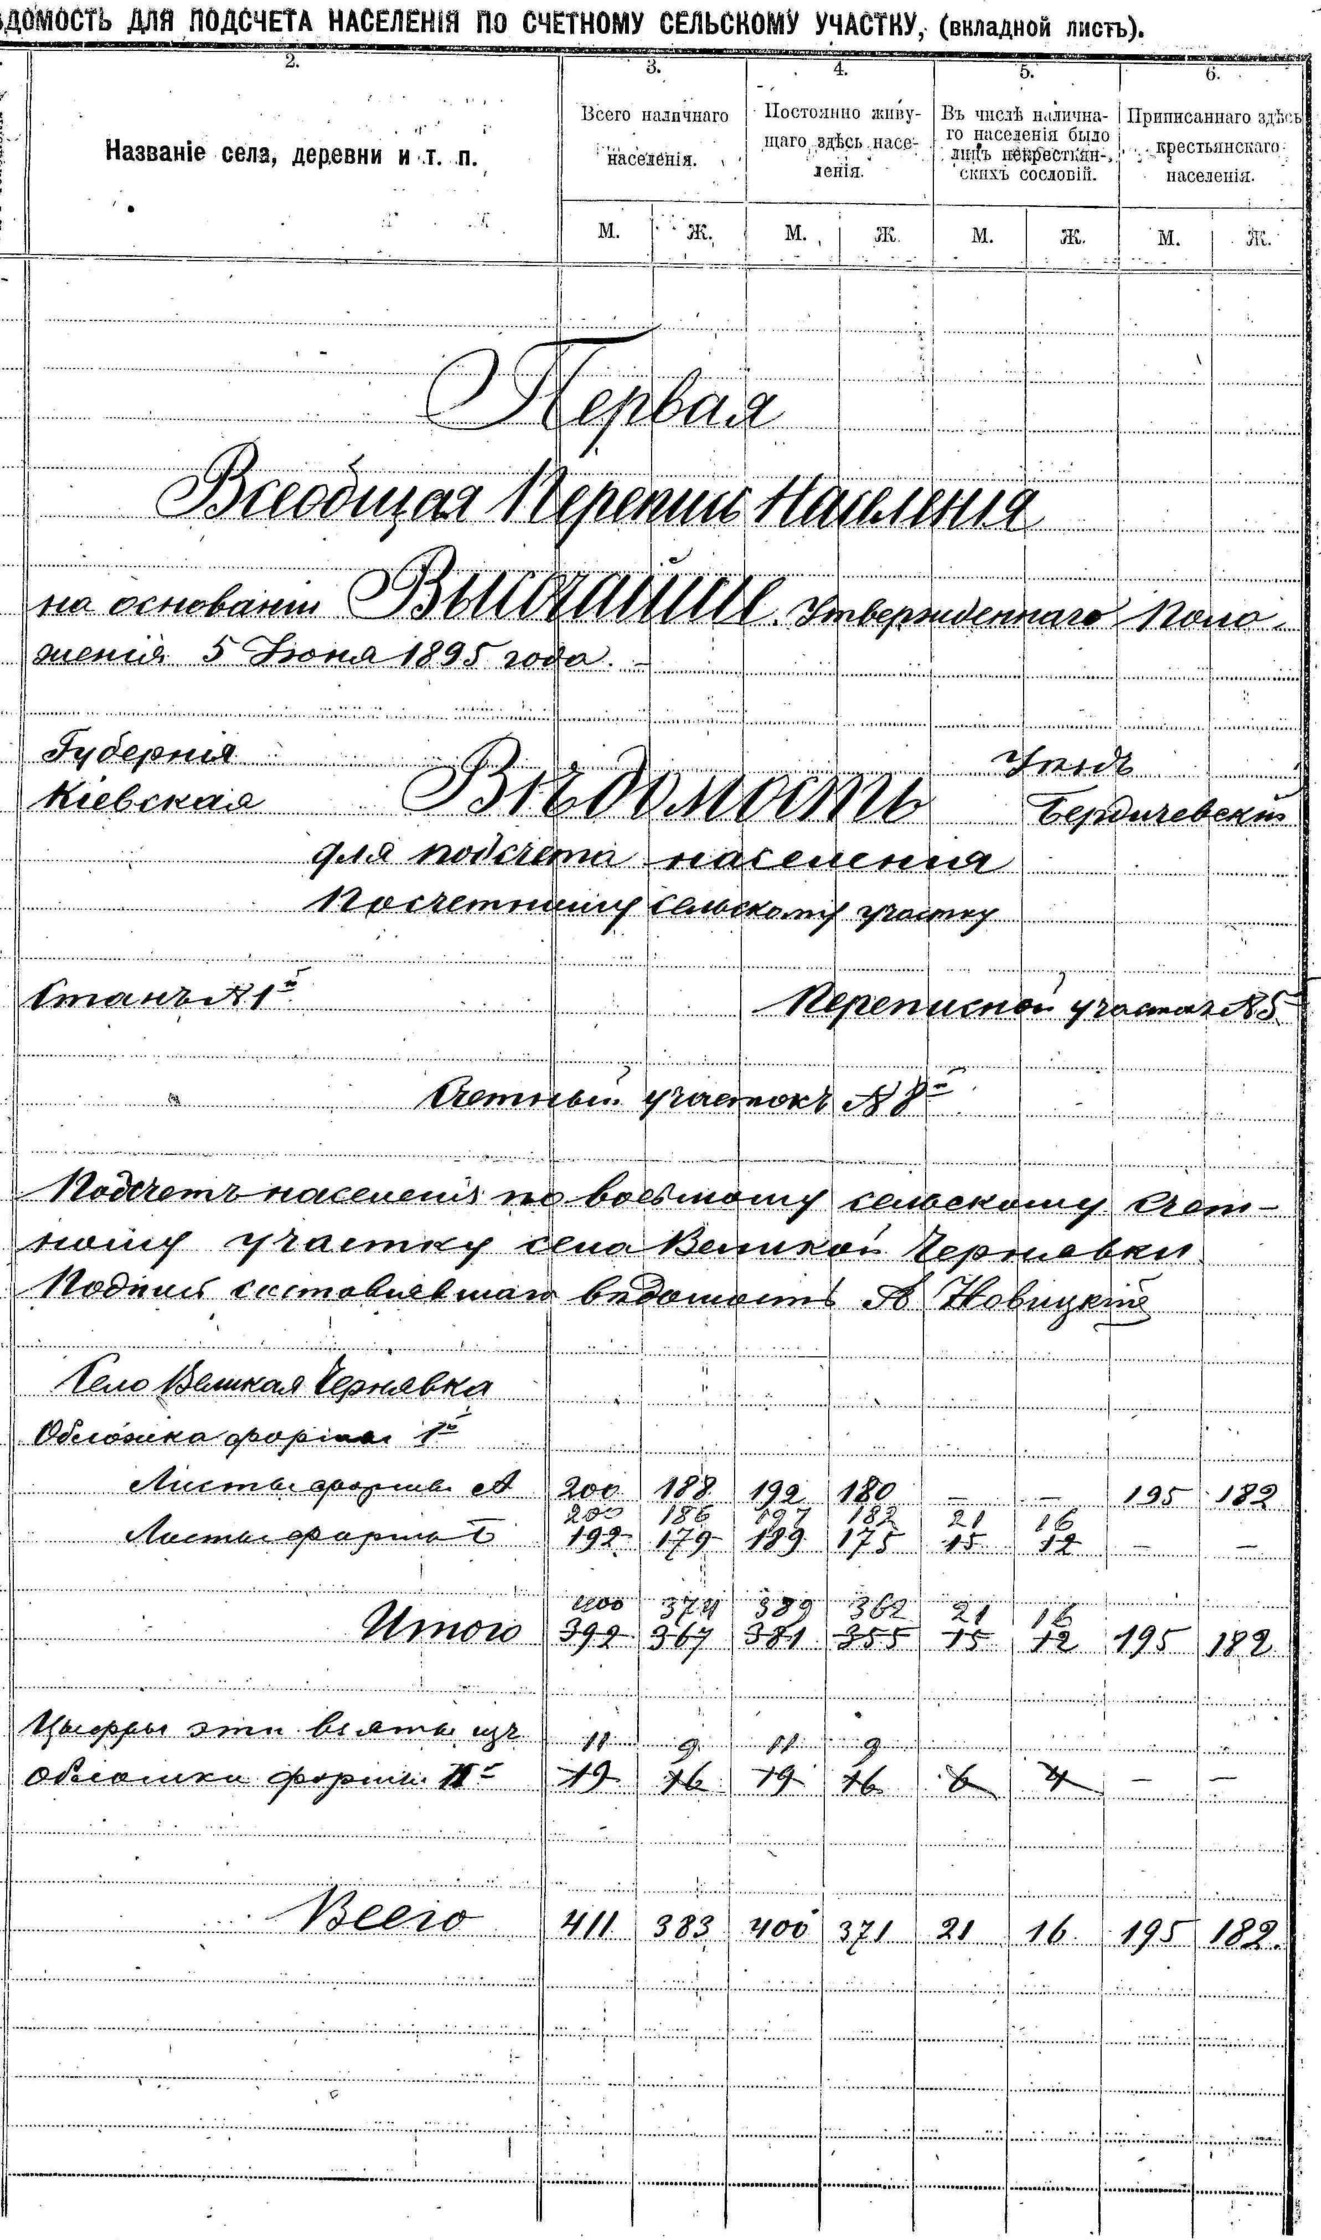 ѢДОМОСТЬ ДЛЯ ПОДСЧЕТА НАСЕЛЕНІЯ ПО СЧЕТНОМУ СЕЛЬСКОМУ УЧАСТКУ, (вкладной листъ).
2. 3. 4. 5. 6.
Названіе села, деревни и т. п.
Всего наличнаго
населенія.
Постоянно живу-
щаго здѣсь насе-
ленія.
Въ числѣ налична-
го населенія было
лицъ некрестьян-
скихъ сословій.
Приписаннаго здѣсь
крестьянскаго
населенія.
М. Ж. М. Ж. М. Ж. М. Ж.
Первая
Всеобщая Перепись Населенія
на основаніи Высочайше Утвержденнаго Поло-
женія 5 Іюня 1895 года.
Губернія
Кіевская
Вѣдомость
Уѣздъ
Бердичевскій
для подсчета населенія
По счетному сельскому участку
Станъ № 1й
Переписной участокъ № 5
Счетный участокъ № 8й
Подсчетъ населенія по восьмому сельскому счет-
ному участку села Великой Чернявки
Подпись составлявшаго вѣдомость А Новицкій
Село Великая Чернявка
Обложка формы 1й
Листы формы А 200 188 192 180 — — 195 182
200 186 197 182 21 16
Листы формы Б 192 179 189 175 15 12 — —
400 374 389 362 21 16
Итого 392 367 381 355 15 12 195 182
Цыфры эти взяты изъ 11 9 11 9
обложки формы II й 19 16 19 16 6 4 — —
Всего 411 383 400 371 21 16 195 182.